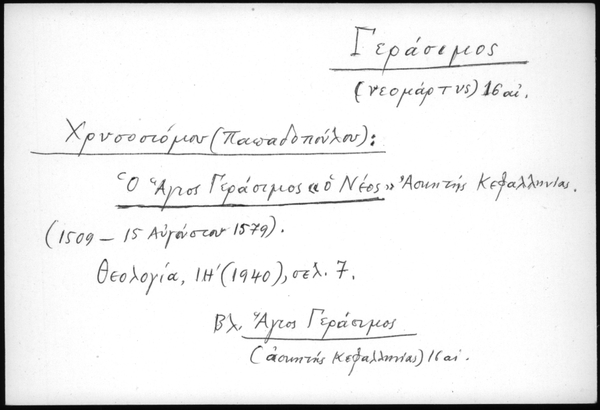 Γεράσιμος
(νεομάρτυς) 16 αἰ.
Χρυσοστόμου (Παπαδοπούλου):
Ὁ Ἅγιος Γεράσιμος «ὁ Νέος» Ἀσκητής Κεφαλληνίας.
(1509 – 15 Αὐγούστου 1579).
Θεολογία, ΙΗ' (1940), σελ. 7.
Βλ. Ἅγιος Γεράσιμος
(ἀσκητής Κεφαλληνίας) 16 αἰ.